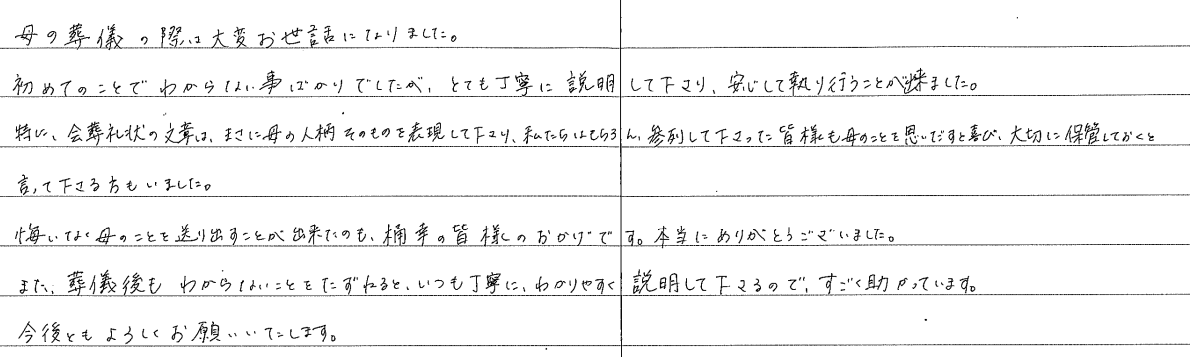 母の葬儀の際は大変お世話になりました。
初めてのことでわからない事ばかりでしたが、とても丁寧に説明して下さり、安心して執り行うことが出来ました。
特に、会葬礼状の文章は、まさに母の人柄そのものを表現して下さり、私たちはもちろん、参列して下さった皆様も母のことを思いだすと喜び、大切に保管しておくと
言って下さる方もいました。
悔いなく母のことを送り出すことが出来たのも、桶幸の皆様のおかげです。本当にありがとうございました。
また、葬儀後もわからないことをたずねると、いつも丁寧に、わかりやすく説明して下さるので、すごく助かっています。
今後ともよろしくお願いいたします。